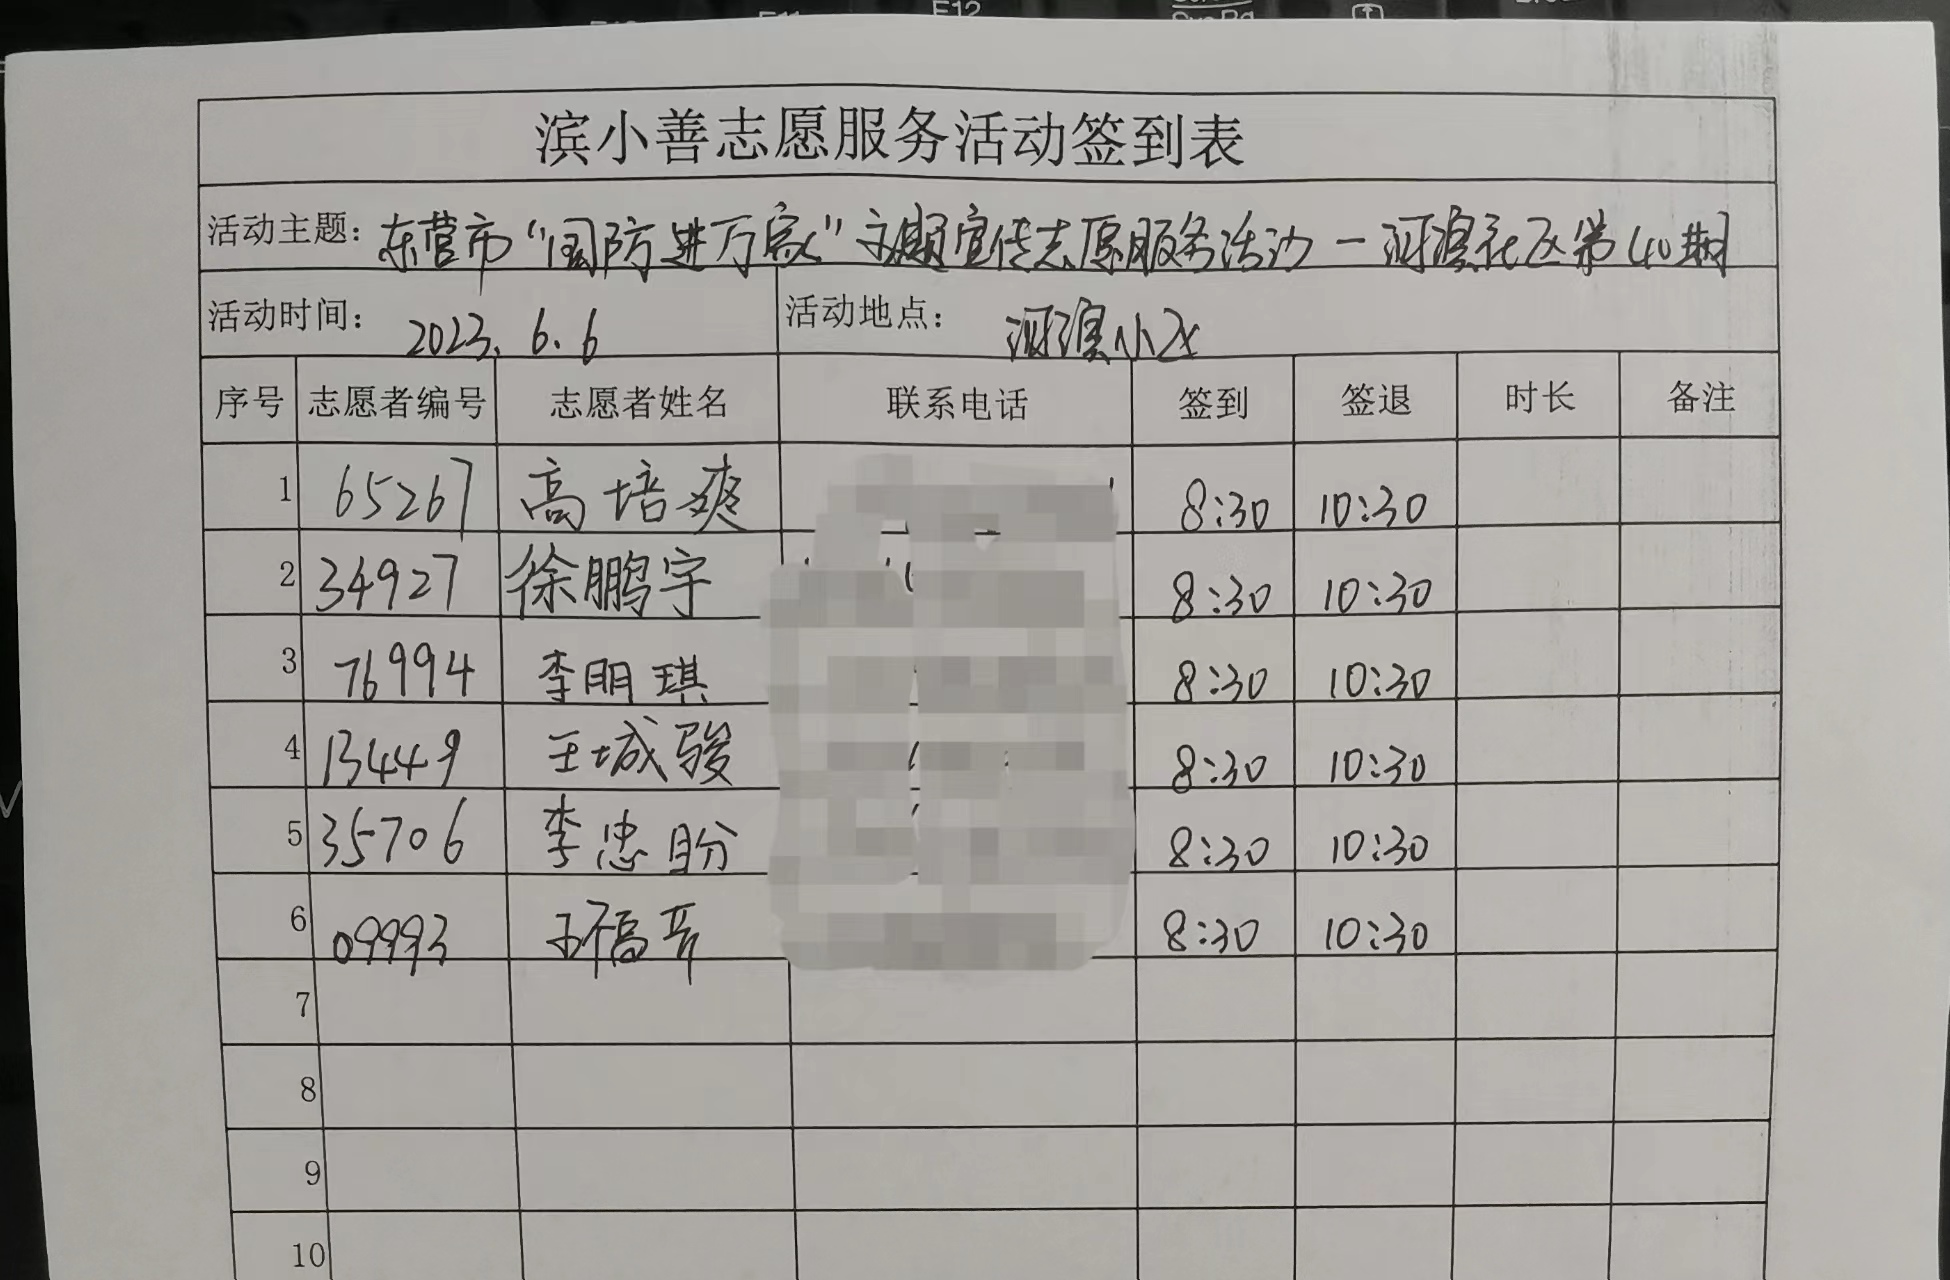 F12
滨小善志愿服务活动签到表
活动主题: 东营市“国防进万家”主题宣传志愿服务活动-河滨社区第40期
活动时间: 2023.6.6 活动地点: 河滨小区
序号 志愿者编号 志愿者姓名 联系电话 签到 签退 时长 备注
1 65267 高培爽 8:30 10:30
2 34927 徐鹏宇 8:30 10:30
3 76994 李明琪 8:30 10:30
4 13449 王城骏 8:30 10:30
5 35706 李忠盼 8:30 10:30
6 09993 8:30 10:30
7
8
9
10